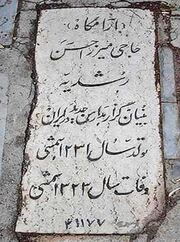 آرامگاه
حاجی میرزا حسن
رشدیه
بنیان گزار مدارس جدید در ایران
تولد سال ۱۲۳۱ شمسی
وفات سال ۱۳۲۳ شمسی
۴۱۱۷۷